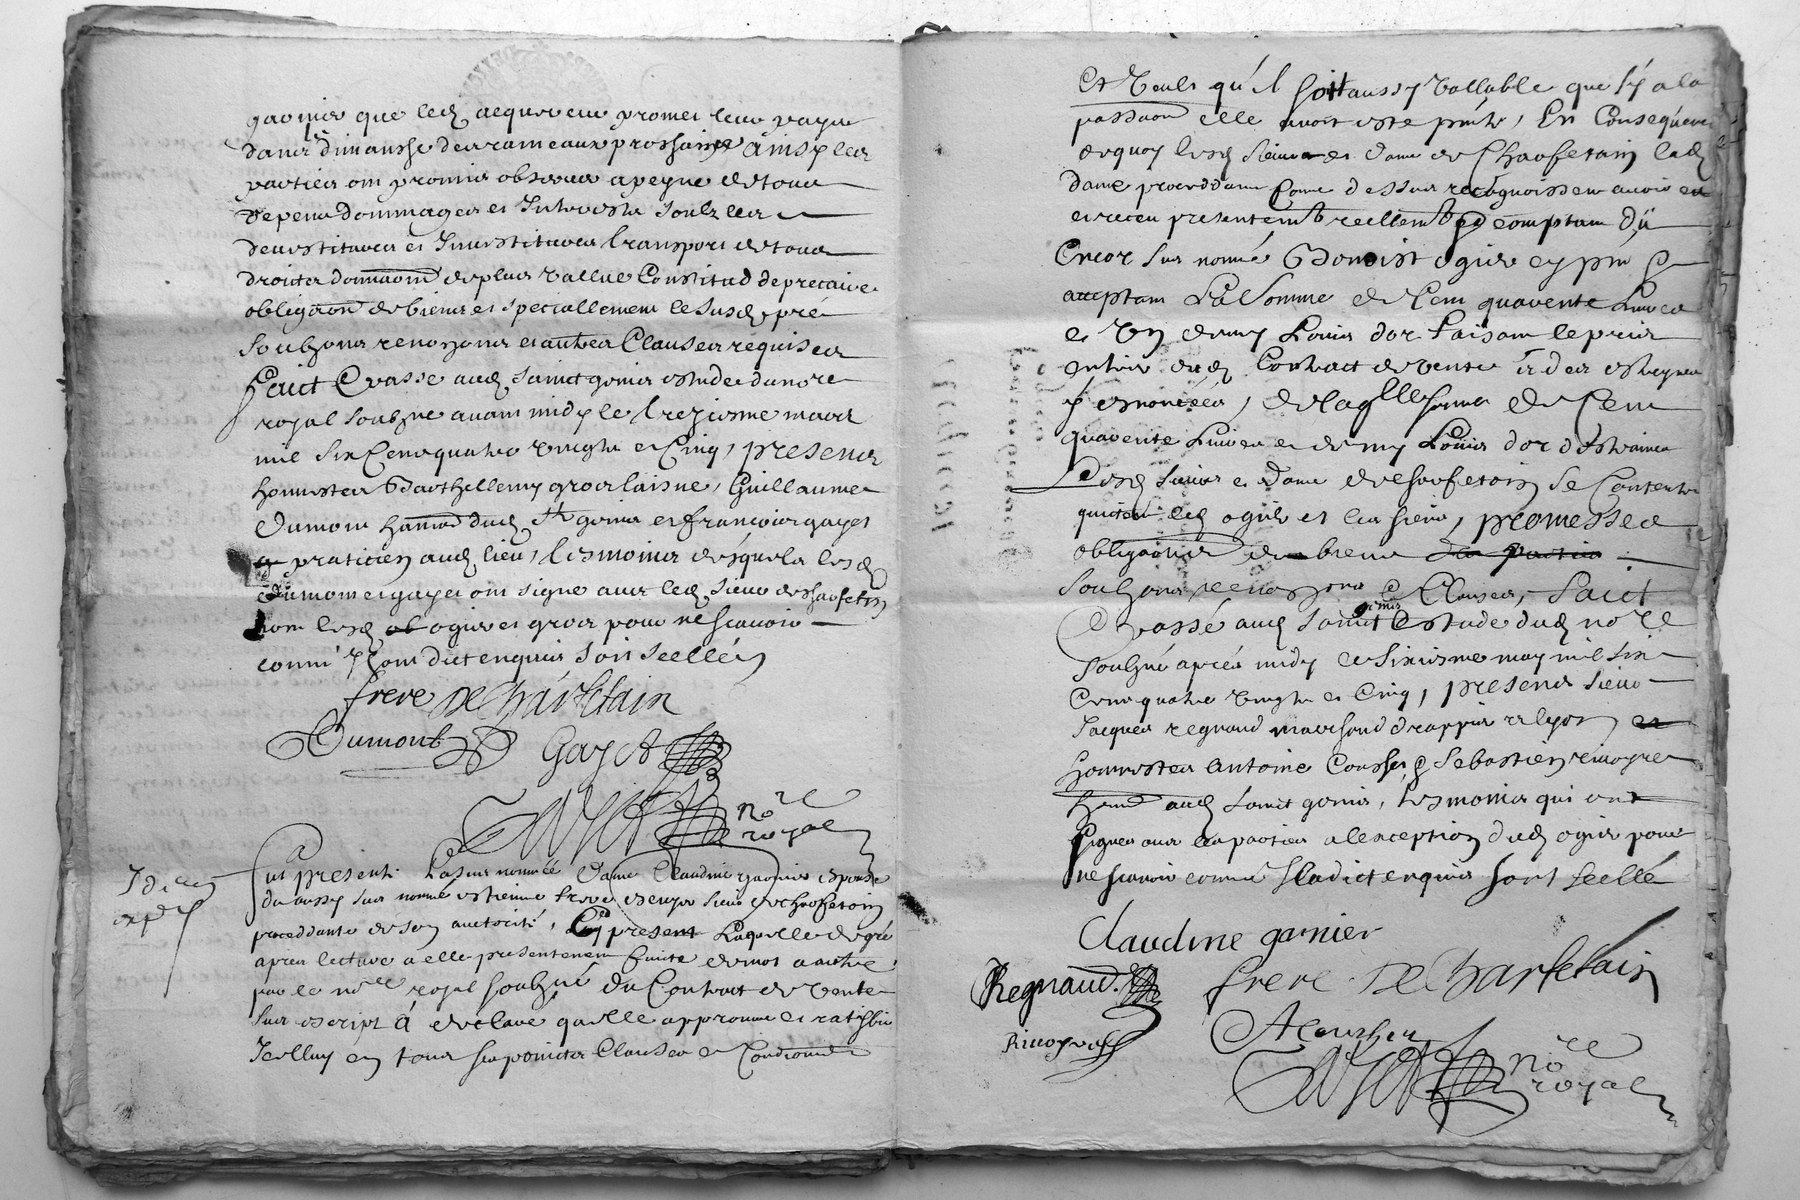 garnier que led acquereur promet leur payer
dans dimansse des rameaux prossains ainsy les
parties ont promis observer a peyne de tous
depens dommages et Interests soubz les
devestitures et Investitures transport de tous
droicts domma[...] de plus vallue Constitud de precaire
obligaon de biens et speciallement le susd pré
soubzons renonzons et autres Clauses requises
Faict & passe aud sainct genis estude du nore
royal soubzne avant midy le trezieme mars
mil six Cens quatre vingts et Cinq, presens
honnestes Barthellemy gros laisne, Guillaume
Dumont hannd dud St genis et francois gayet
praticien aud lieu, tesmoins desquels lesd
Dumont et gayet ont signe avec led sieur de Charfetain
non lesd ogier et gros pour ne scavoir
comm' Ilz ont dict enquis soit seellé
frere De Charfetain
Dumont Gayet
Gayet nore
royal
Jd
exped
Fut present Lasus nommée Dame Claudine garnier espouse
du aussy sus nommé estienne frere escuyer sieur de Charfetain
proceddante de son auctorité, Cy present Laquelle de gré
apres lecture a elle presentement faicte de mot a autre
par le nore royal soubzné du Contract de vente
sus escript á declare qu'elle approuve et ratiffie
Icelluy en tous ses poincts Clauses et Condiōnes
Et veult qu'il soit aussy vallable que sy a la
passaon elle avoit esté pnte, En Consequence
dequoy lesd sieur et dame de Charfetain lad
dame proceddant Come dessus recognoissent avoir eu
et receu presentemt reellemt et comptant dú
Encor sus nommé Benoist ogier cy pnt &
acceptant La Somme de Cent quarente Livres
et Un demy Louis d'or faisant le prix
entier dud Contract de vente et des estreynes
y enoncées, de laqlle somme de Cent
quarente Livres et demy Louis dor d'estraines
Lesd sieur et dame de Charfetain se Contentent
quictent led ogier et les siens, promesses
obligaons de biens des parties
soubzons renonzons & Clauses, Faict
& passé aud sainct genis Estude dud nore
soubzné apres midy le sixiesme may mil six
Cens quatre vingts et Cinq, presens sieur
Jacques regnaud marchand drappier de lyon et
honnestes antoine Coussin & Sebastien rivoyre
hand aud sainct genis, tesmoins qui ont
signes avec les parties a lexception dud ogier pour
ne scavoir comme Il a dict enquis soit seellé
Claudine garnier
Regnaud frere De Charfetain
Rivoyre
Gayet nore
royal